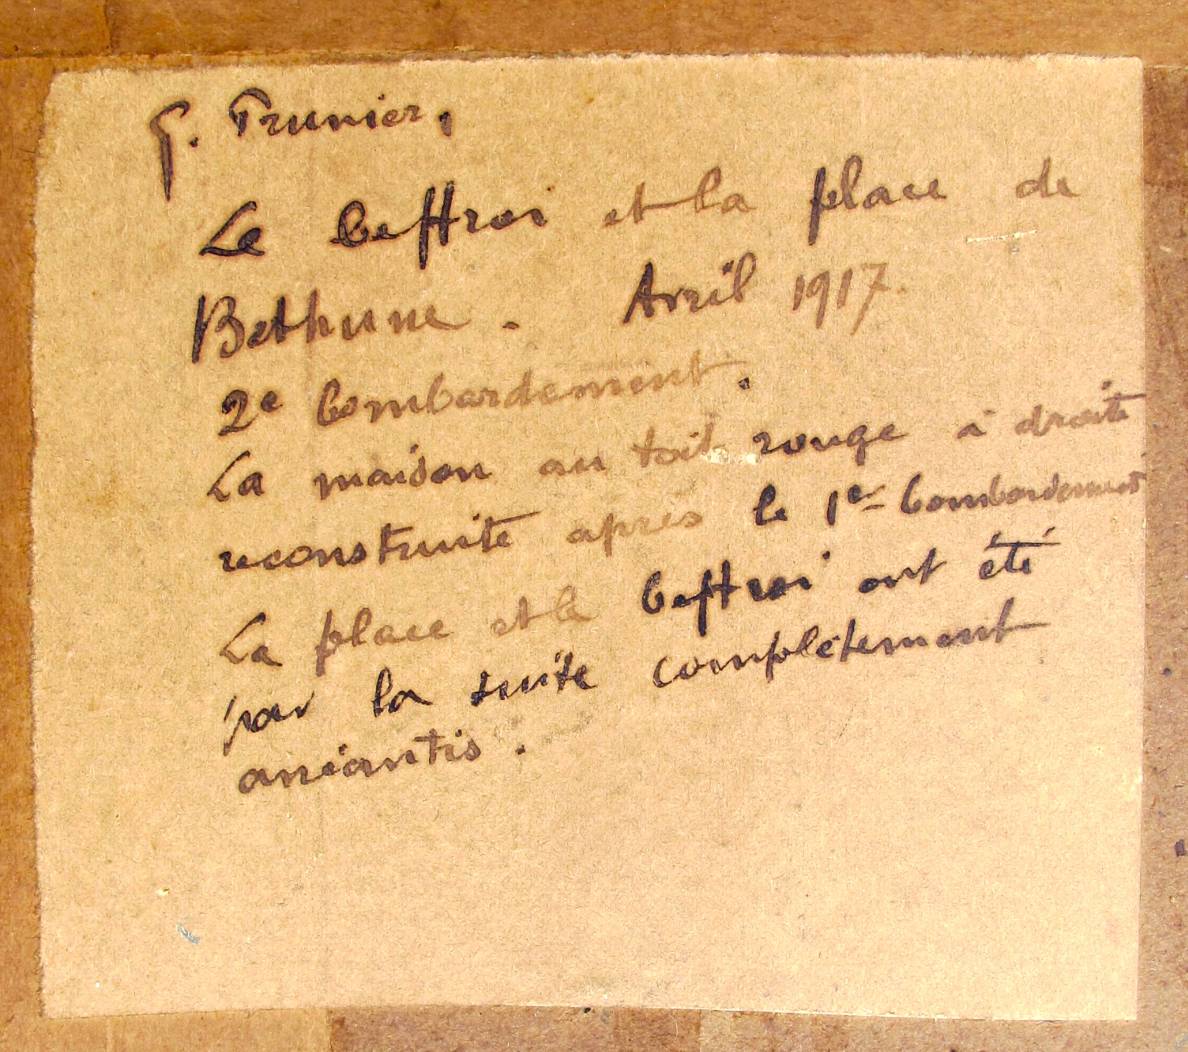 G. Prunier,
Le beffroi et la place de
Bethune. Avril 1917.
2e bombardement.
La maison au toit rouge à droite
reconstruite après le 1er bombardement
La place et le beffroi ont été
par la suite complètement
anéantis.